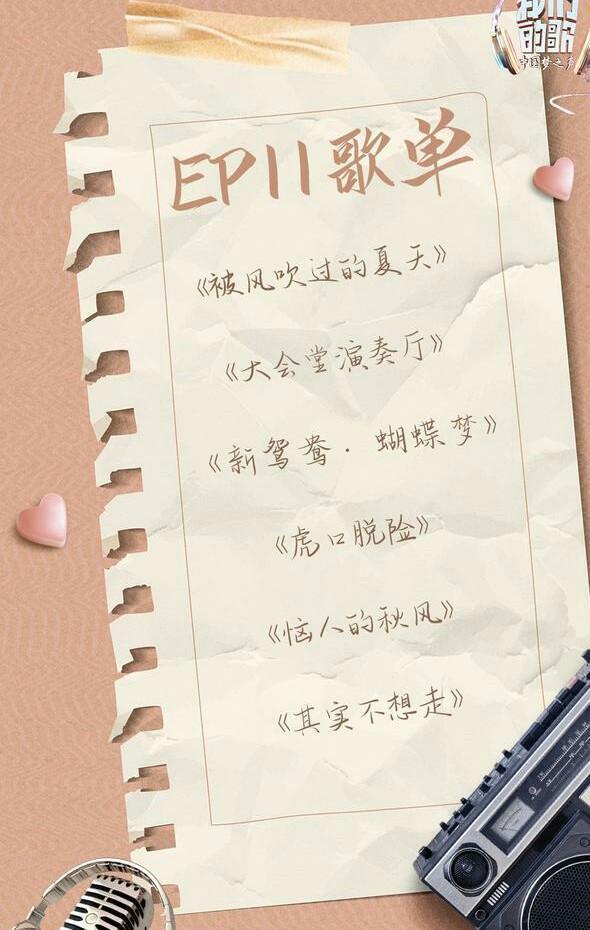 我们
的歌
中国梦之声
EP11歌单
《被风吹过的夏天》
《大会堂演奏厅》
《新鸳鸯·蝴蝶梦》
《虎口脱险》
《恼人的秋风》
《其实不想走》